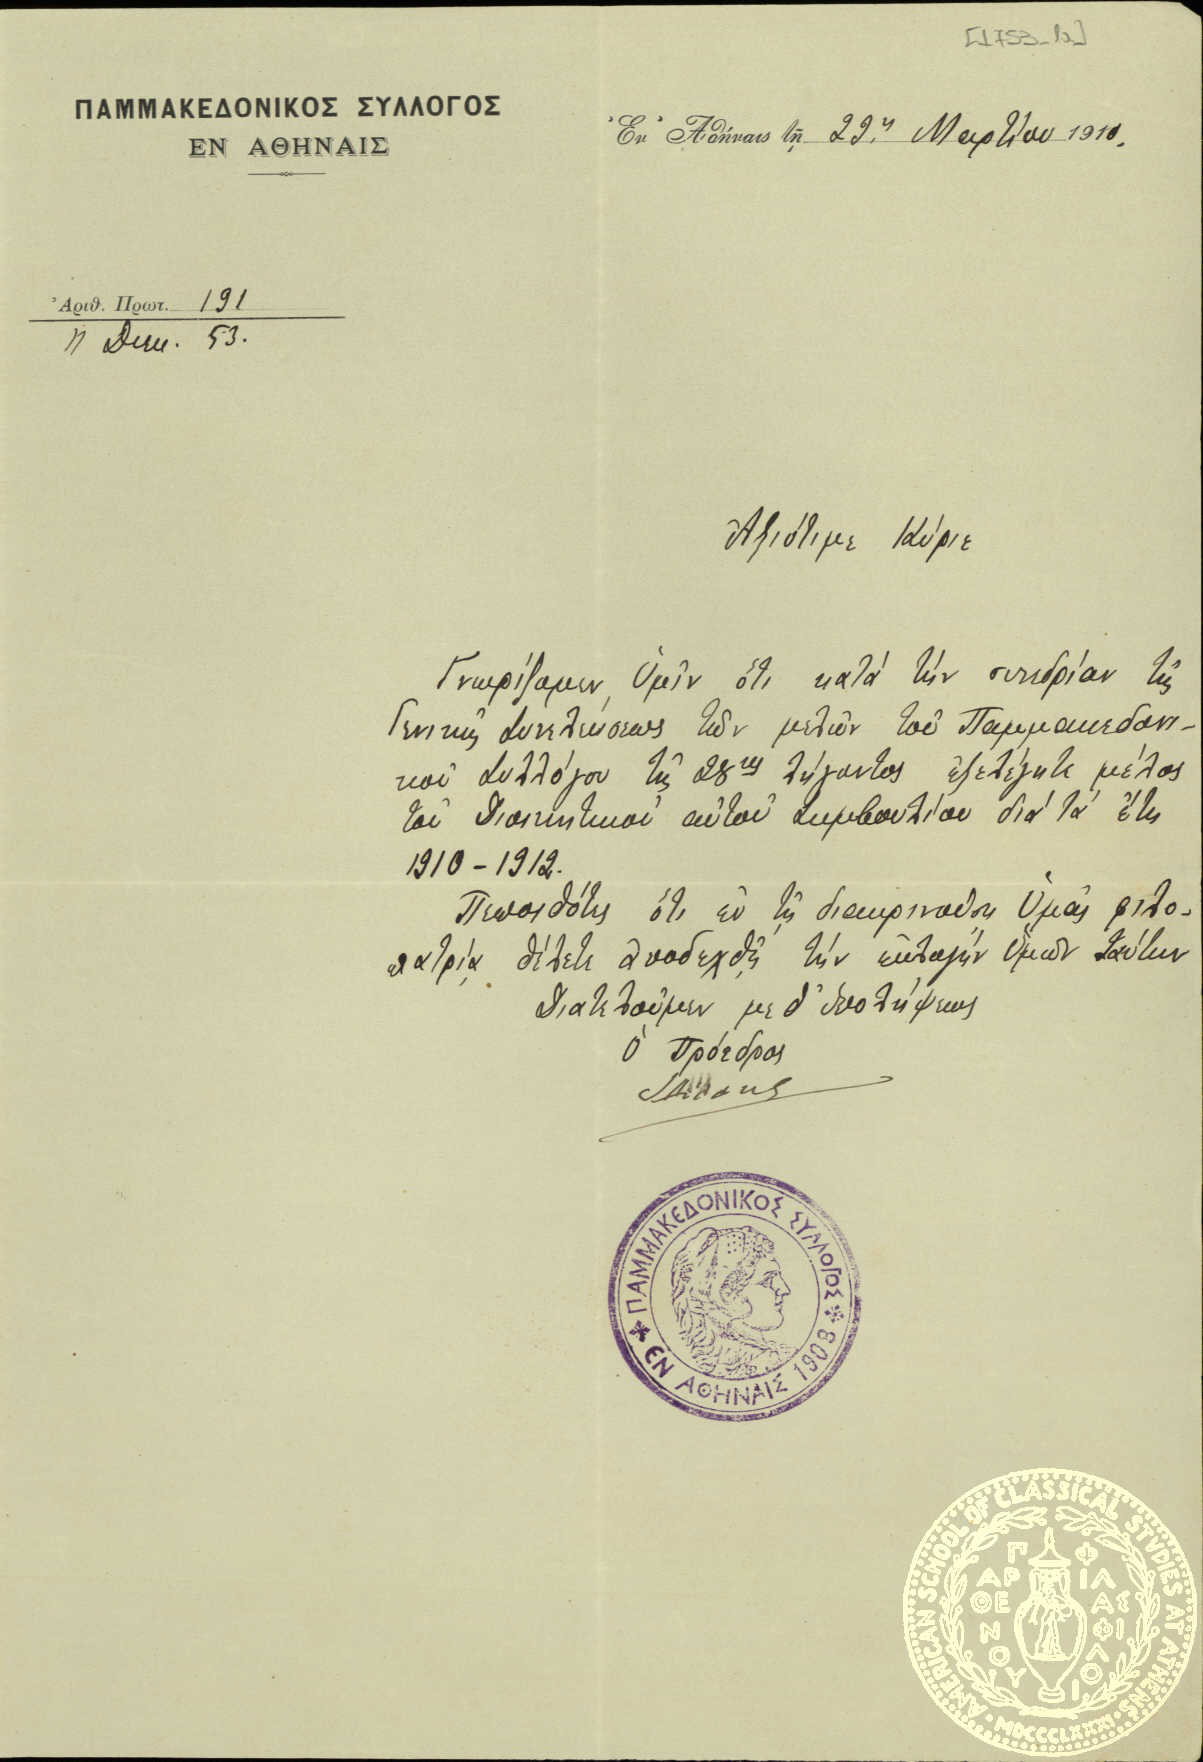 [1753_b]
ΠΑΜΜΑΚΕΔΟΝΙΚΟΣ ΣΥΛΛΟΓΟΣ
ΕΝ ΑΘΗΝΑΙΣ
Ἐν Ἀθήναις τῇ 29ῃ Μαρτίου 1910.
Ἀριθ. Πρωτ. 191
" Διεκ. 53.
Ἀξιότιμε Κύριε
Γνωρίζομεν Ὑμῖν ὅτι κατά τήν συνεδρίαν τῆς
Γενικῆς Συνελεύσεως τῶν μελῶν τοῦ Παμμακεδονι-
κοῦ Συλλόγου τῆς 28ης λήγοντος ἐξελέγητε μέλος
τοῦ Διοικητικοῦ αὐτοῦ Συμβουλίου διά τά ἔτη
1910-1912.
Πεποιθότες ὅτι ἐν τῇ διακρινούσῃ Ὑμᾶς φιλο-
πατρίᾳ θέλετε ἀποδεχθῆ τήν ἐκλογήν Ὑμῶν ταύτην
Διατελοῦμεν μεθ' ὑπολήψεως
Ὁ Πρόεδρος
ΠΑΜΜΑΚΕΔΟΝΙΚΟΣ ΣΥΛΛΟΓΟΣ
ΕΝ ΑΘΗΝΑΙΣ 1903
AMERICAN SCHOOL OF CLASSICAL STVDIES AT ATHENS
MDCCCLXXXI
ΠΑΡΘΕΝΟΥ ΦΙΛΑΣ ΦΙΛΟΙ